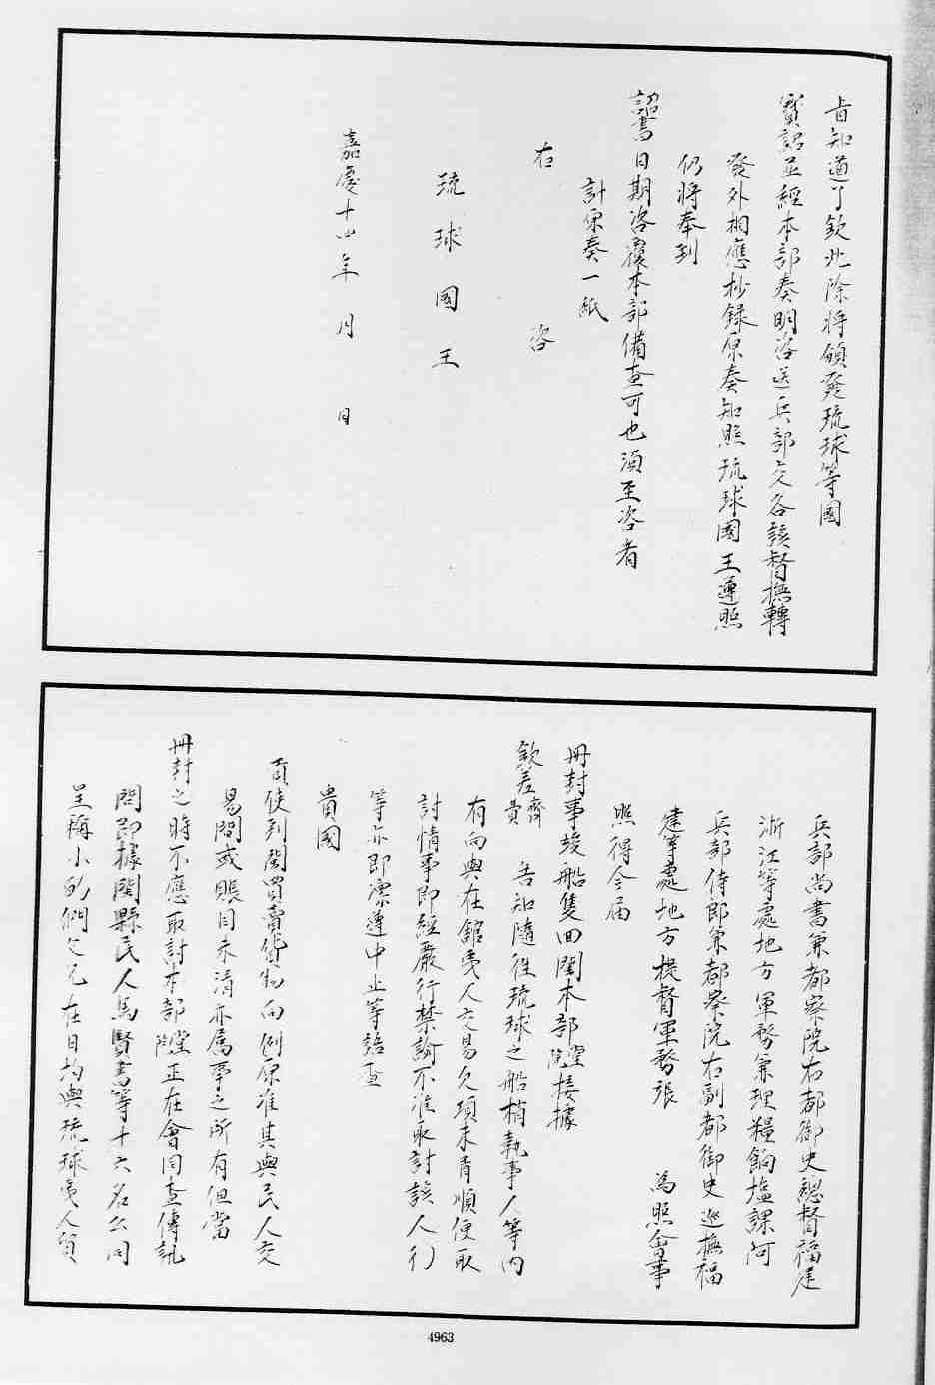 旨知道了欽此除將頒發琉球等國
寳詔並經本部奏明咨送兵部交各該督撫轉
發外相應抄録原奏知照琉球國王遵照
仍將奉到
詔書日期咨覆本部備查可也須至咨者
計原奏一紙
右咨
琉球國王
嘉慶十四年月日
兵部尚書兼都察院右都御史總督福建
浙江等處地方軍務兼理糧餉塩課阿
兵部侍郎兼都察院右副都御史巡撫福
建等處地方提督軍務張 為照會事
照得今届
冊封事竣船隻回閩本部堂院接據
欽差齊費 告知隨往琉球之船梢執事人等内
有向與在舘夷人交易欠項未清順便取
討情事即經嚴行禁諭不准取討該人行
等亦即凛遵中止等語查
貴國
貢使到閩買賣貨物向例原准其與民人交
易間或賬目未清亦属事之所有但當
冊封之時不應取討本部堂院正在會同查傳訊
問即據閩縣民人馬賢書等十六名公同
呈稱小的們父兄在日均與琉球夷人貿
4963